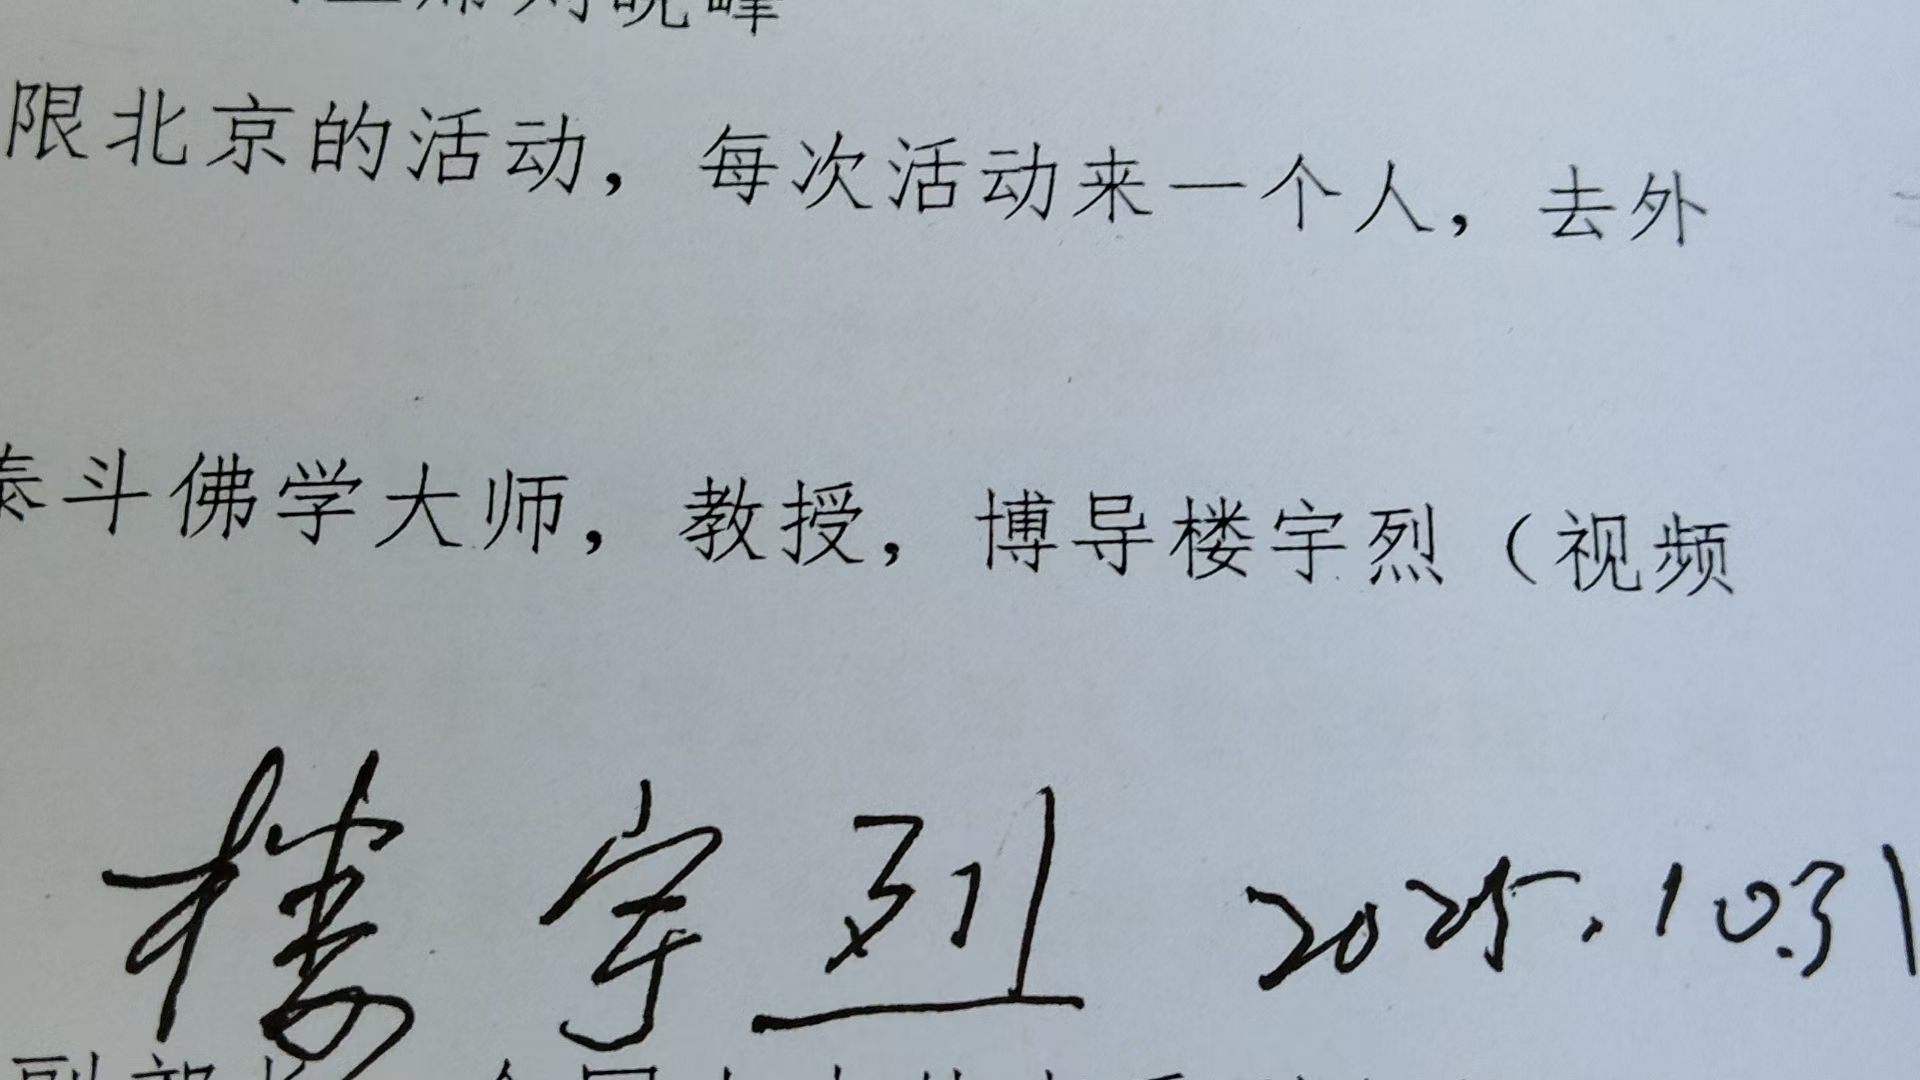 刘晓峰
限北京的活动，每次活动来一个人，去外
泰斗佛学大师，教授，博导楼宇烈（视频
楼宇烈 2025.10.31